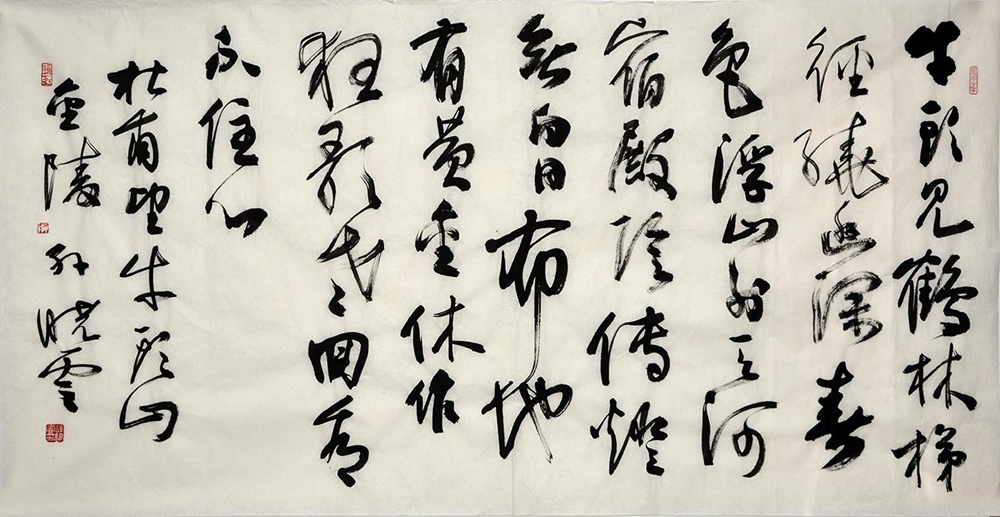 牛頭見鶴林梯
徑繞幽深春
色浮山外天河
宿殿陰傳燈
無白日布地
有黄金休作
狂歌老回看
不住心
杜甫望牛頭
金陵孫曉雲